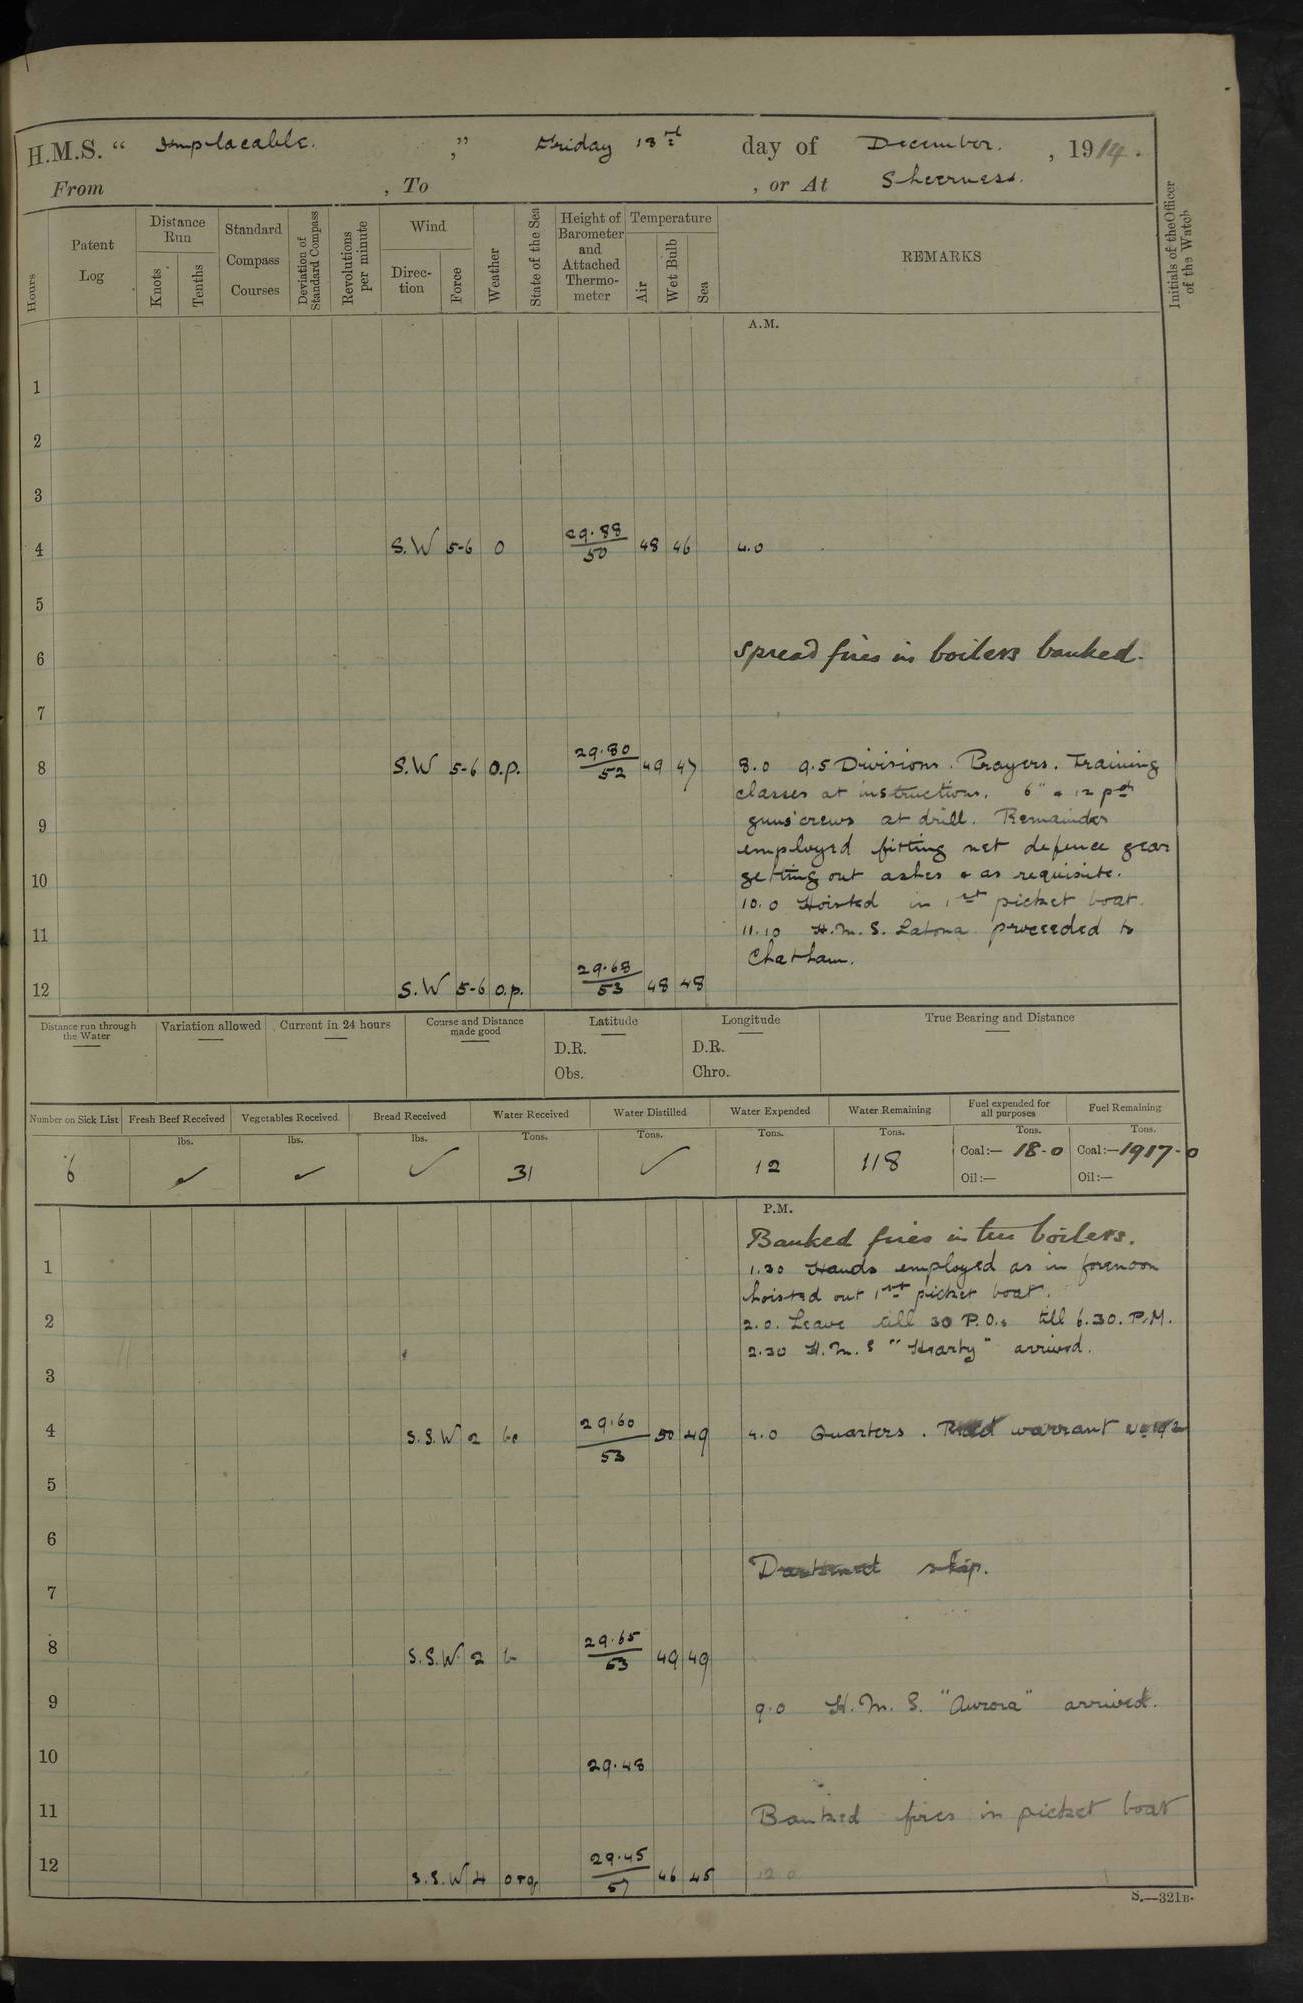 H.M.S. “ Implacable. ,” Friday 18 day of December. , 1914.
From , To , or At Sheerness.
Hours
Patent Log
Distance Run
Knots
Tenths
Standard Compass Courses
Deviation of Standard Compass
Revolutions per minute
Wind
Direc-tion
Force
Weather
State of the Sea
Height of Barometer and Attached Thermo-meter
Temperature
Air
Wet Bulb
Sea
REMARKS
Initials of the Officer of the Watch
A.M.
1
2
3
4 S.W 5-6 0 29.88/50 48 46 4.0
5
6 Spread fires in boilers banked.
7
8 S.W 5-6 o.p. 29.80/52 49 47 8.0 9.5 Divisions. Prayers. Training
classes at instructions. 6" & 12 pdr
9 guns' crews at drill. Remainder
employed fitting net defence gear
10 getting out ashes & as requisite.
10.0 Hoisted in 1st picket boat.
11 11.10 H.M.S. Latona proceeded to
Chatham.
12 S.W 5-6 o.p. 29.68/53 48 48
Distance run through the Water
Variation allowed
Current in 24 hours
Course and Distance made good
Latitude
D.R.
Obs.
Longitude
D.R.
Chro.
True Bearing and Distance
Number on Sick List Fresh Beef Received Vegetables Received Bread Received Water Received Water Distilled Water Expended Water Remaining Fuel expended for all purposes Fuel Remaining
lbs. lbs. lbs. Tons. Tons. Tons. Tons. Tons. Tons.
6 ✓ ✓ ✓ 31 ✓ 12 118 Coal:— 18-0 Coal:—1917-0
Oil:— Oil:—
P.M.
Banked fires in boilers.
1 1.30 Hands employed as in forenoon
hoisted out 1st picket boat.
2 2.0. Leave till 30 P.O.s till 6.30. P.M.
2.30 H.M.S "Hearty" arrived.
3
4 S.S.W 2 bc 29.60/53 50 49 4.0 Quarters. Read warrant
5
6
Darkened ship.
7
8 S.S.W. 2 b 29.65/53 49 49
9 9.0 H.M.S. "Aurora" arrived.
10 29.48
11 Banked fires in picket boat
12 S.S.W 4 orq 29.45/57 46 45 12 0
S.—321B.